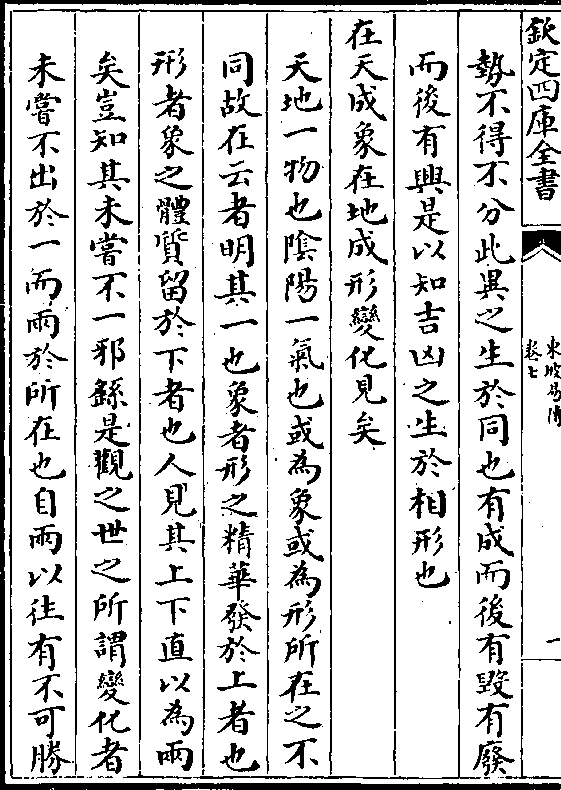 欽定四庫全書
東坡易傳
卷七
一
勢不得不分此異之生於同也有成而後有毀有廢
而後有興是以知吉凶之生於相形也
在天成象在地成形變化見矣
天地一物也陰陽一氣也或為象或為形所在之不
同故在云者明其一也象者形之精華發於上者也
形者象之體質留於下者也人見其上下直以為兩
矣豈知其未嘗不一邪繇是觀之世之所謂變化者
未嘗不出於一而兩於所在也自兩以往有不可勝